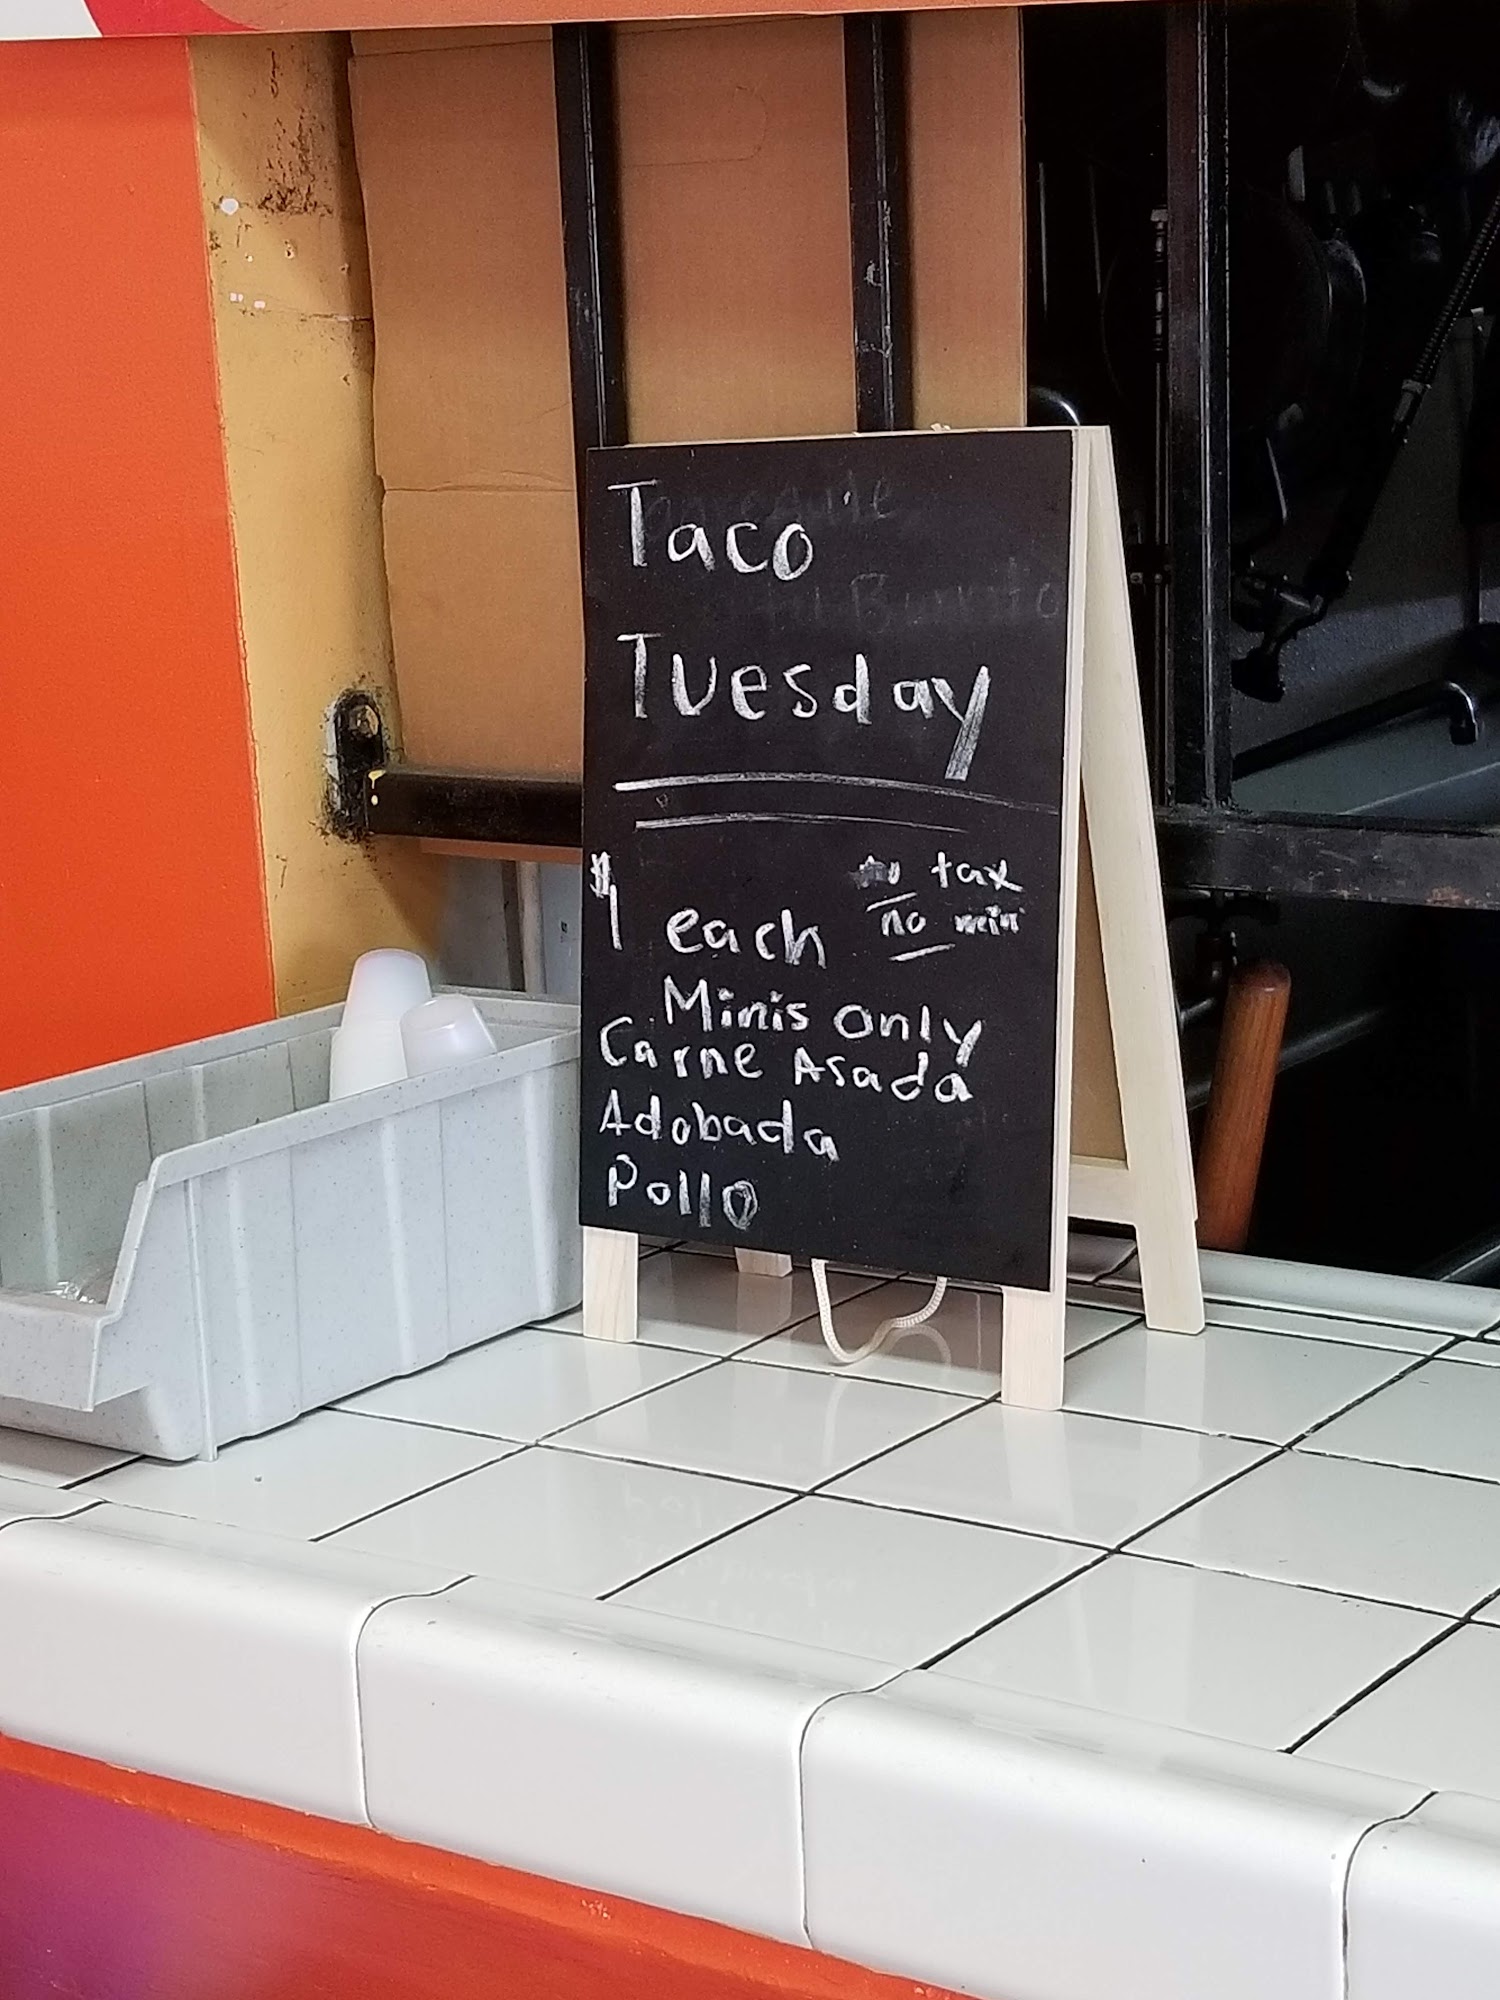 Taco
Tuesday
$1 each
no tax
no min
Minis only
Carne Asada
Adobada
Pollo